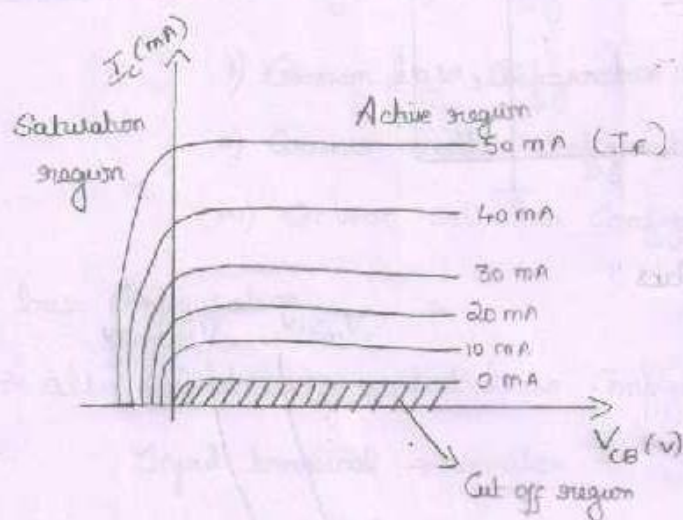 I_C (mA)
Saturation
region
Active region
50 mA (I_E)
40 mA
30 mA
20 mA
10 mA
0 mA
V_CB (V)
Cut off region